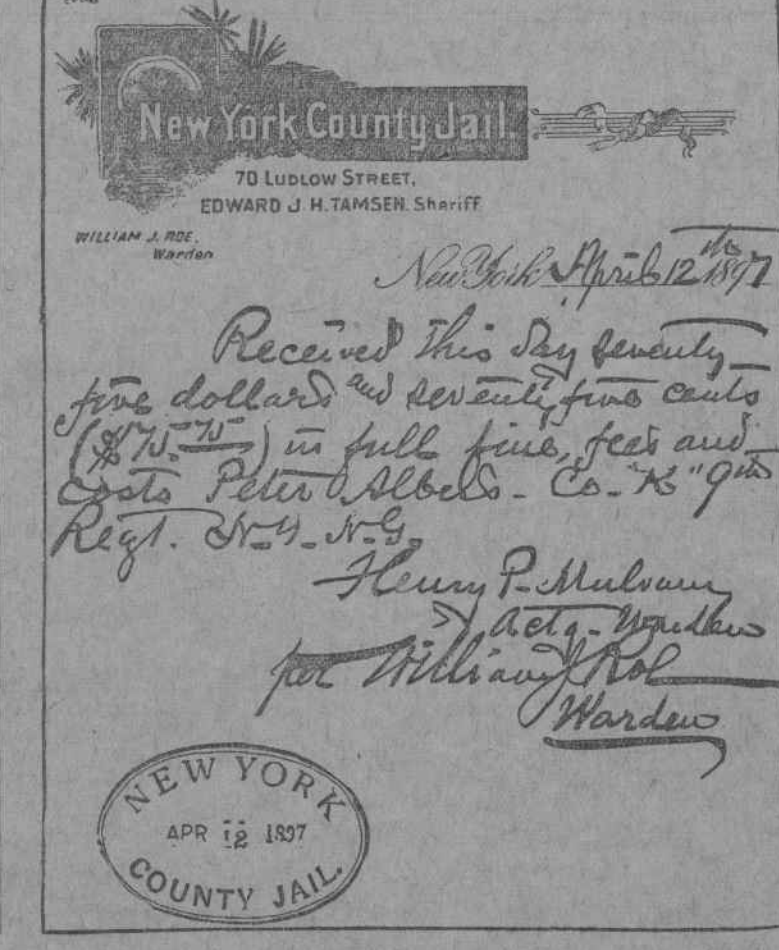 New York County Jail.
70 LUDLOW STREET,
EDWARD J. H. TAMSEN. Sheriff
WILLIAM J. ROE,
Warden
New York April 12th 1897
Received this day seventy
five dollars and seventy five cents
($75.75) in full fine, fees and
costs Peter Albers - Co. "K" 9th
Regt. N.Y. N.G.
Henry P. Mulvany
Actg. Warden
per William J. Roe
Warden
NEW YORK
APR 12 1897
COUNTY JAIL.